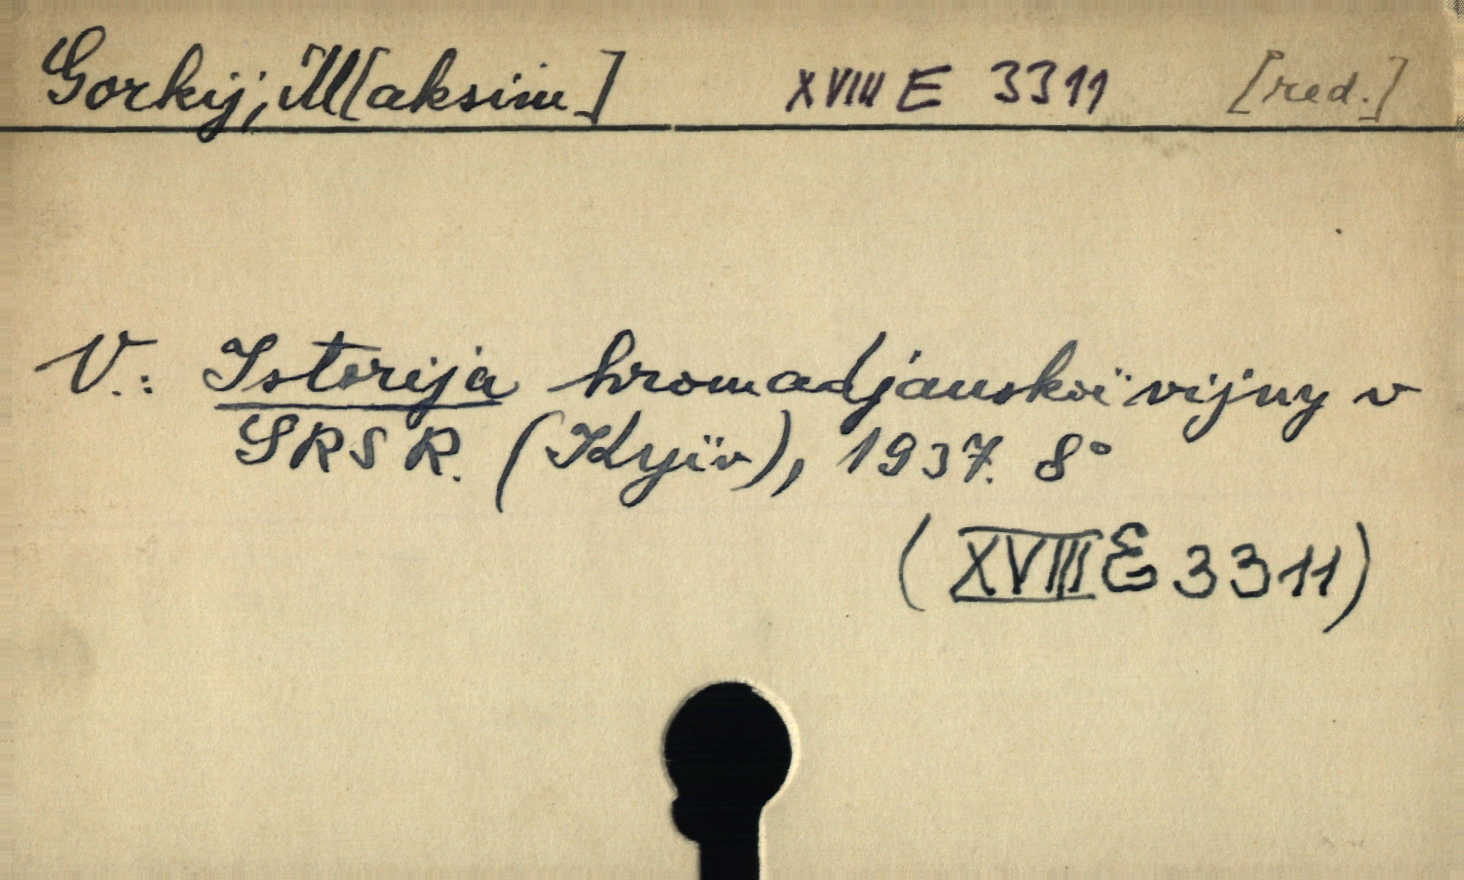 Gorkij, M[aksim] XVIII E 3311 [red.]
V.: Istorija hromadjanskoï vijny v
SRSR. (Kyïv), 1937. 8°
(XVIII E 3311)